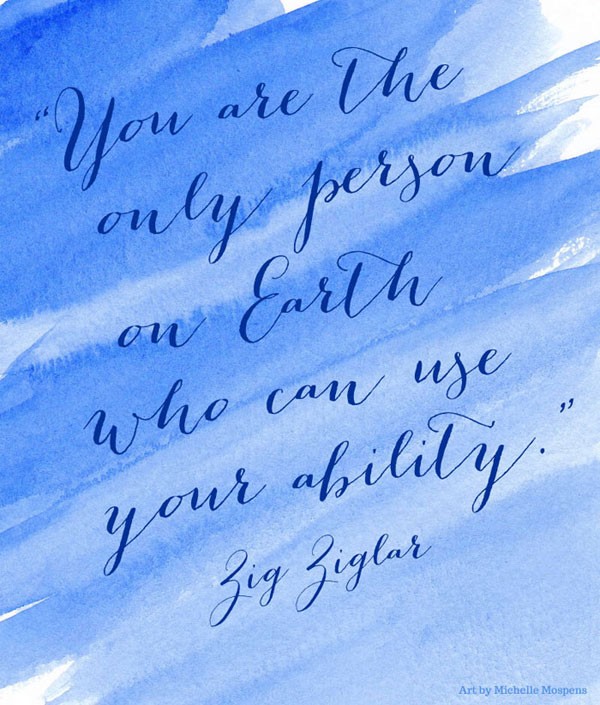 “You are the
only person
on Earth
who can use
your ability.”
Zig Ziglar
Art by Michelle Mospens